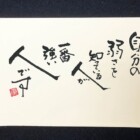 自分の
弱さを
知る人が
一番
強い
人です